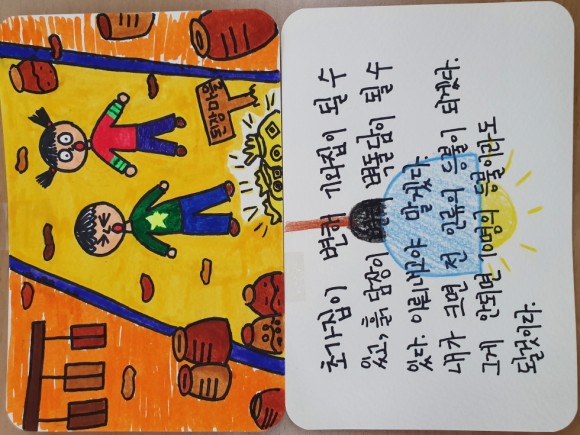 된장마을
초가집이 변해 기와집이 될 수
있고, 흙 담장이 벽돌담이 될 수
있다. 이뤄내고야 말겠다.
내가 크면 전 인류의 등불이 되겠다.
그게 안되면 10명의 등불이라도
될것이다.